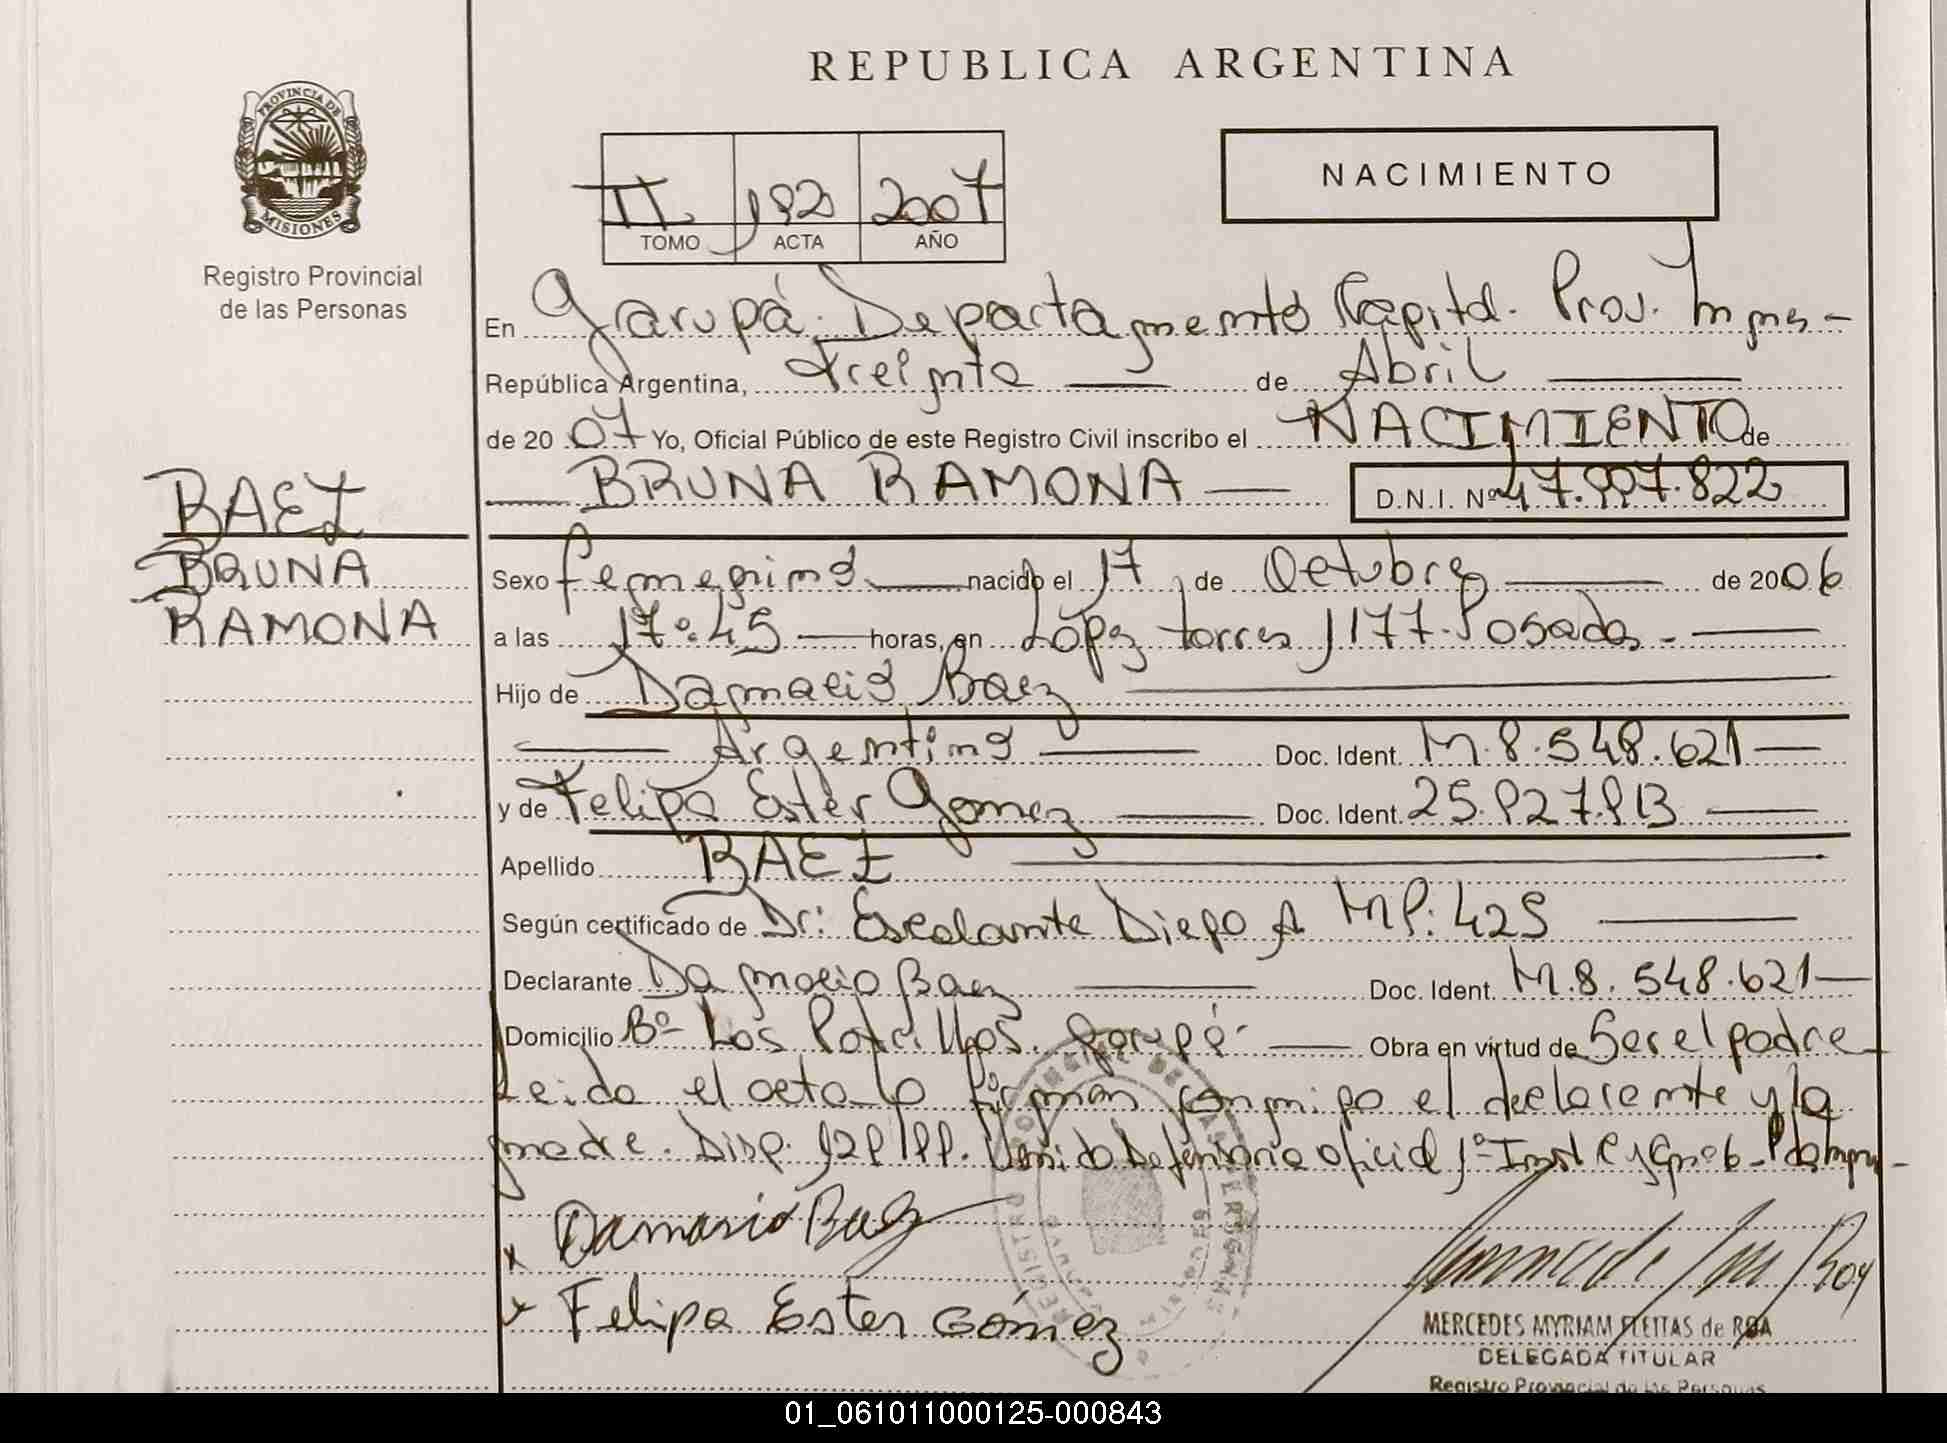 REPUBLICA ARGENTINA
PROVINCIA DE
MISIONES
Registro Provincial
de las Personas
NACIMIENTO
II 192 2007
TOMO ACTA AÑO
En Garupá. Departamento Capital. Prov. Mnes -
República Argentina, treinta de Abril
de 20 07 Yo, Oficial Público de este Registro Civil inscribo el NACIMIENTO de
BRUNA RAMONA D.N.I. Nº 47.997.822
BAEZ
BRUNA
RAMONA
Sexo femenino nacido el 17 de Octubre de 2006
a las 17:45 horas, en López torres 1177. Posadas.-
Hijo de Damacio Baez
Argentino Doc. Ident. M.8.548.621
y de Felipa Ester Gomez Doc. Ident. 25.927.913
Apellido BAEZ
Según certificado de Dr: Escalante Diego A MP: 425
Declarante Damacio Baez Doc. Ident. M.8.548.621
Domicilio Bº Los Potrillos. Garupá- Obra en virtud de Ser el padre
Leida el acta lo firman conmigo el declarante y la
madre. Disp. Defensoria oficial 1º Inst
Damasio Baez
x Felipa Ester Gómez
MERCEDES MYRIAM FLEITAS de ROA
DELEGADA TITULAR
Registro Provincial de las Personas
01_061011000125-000843